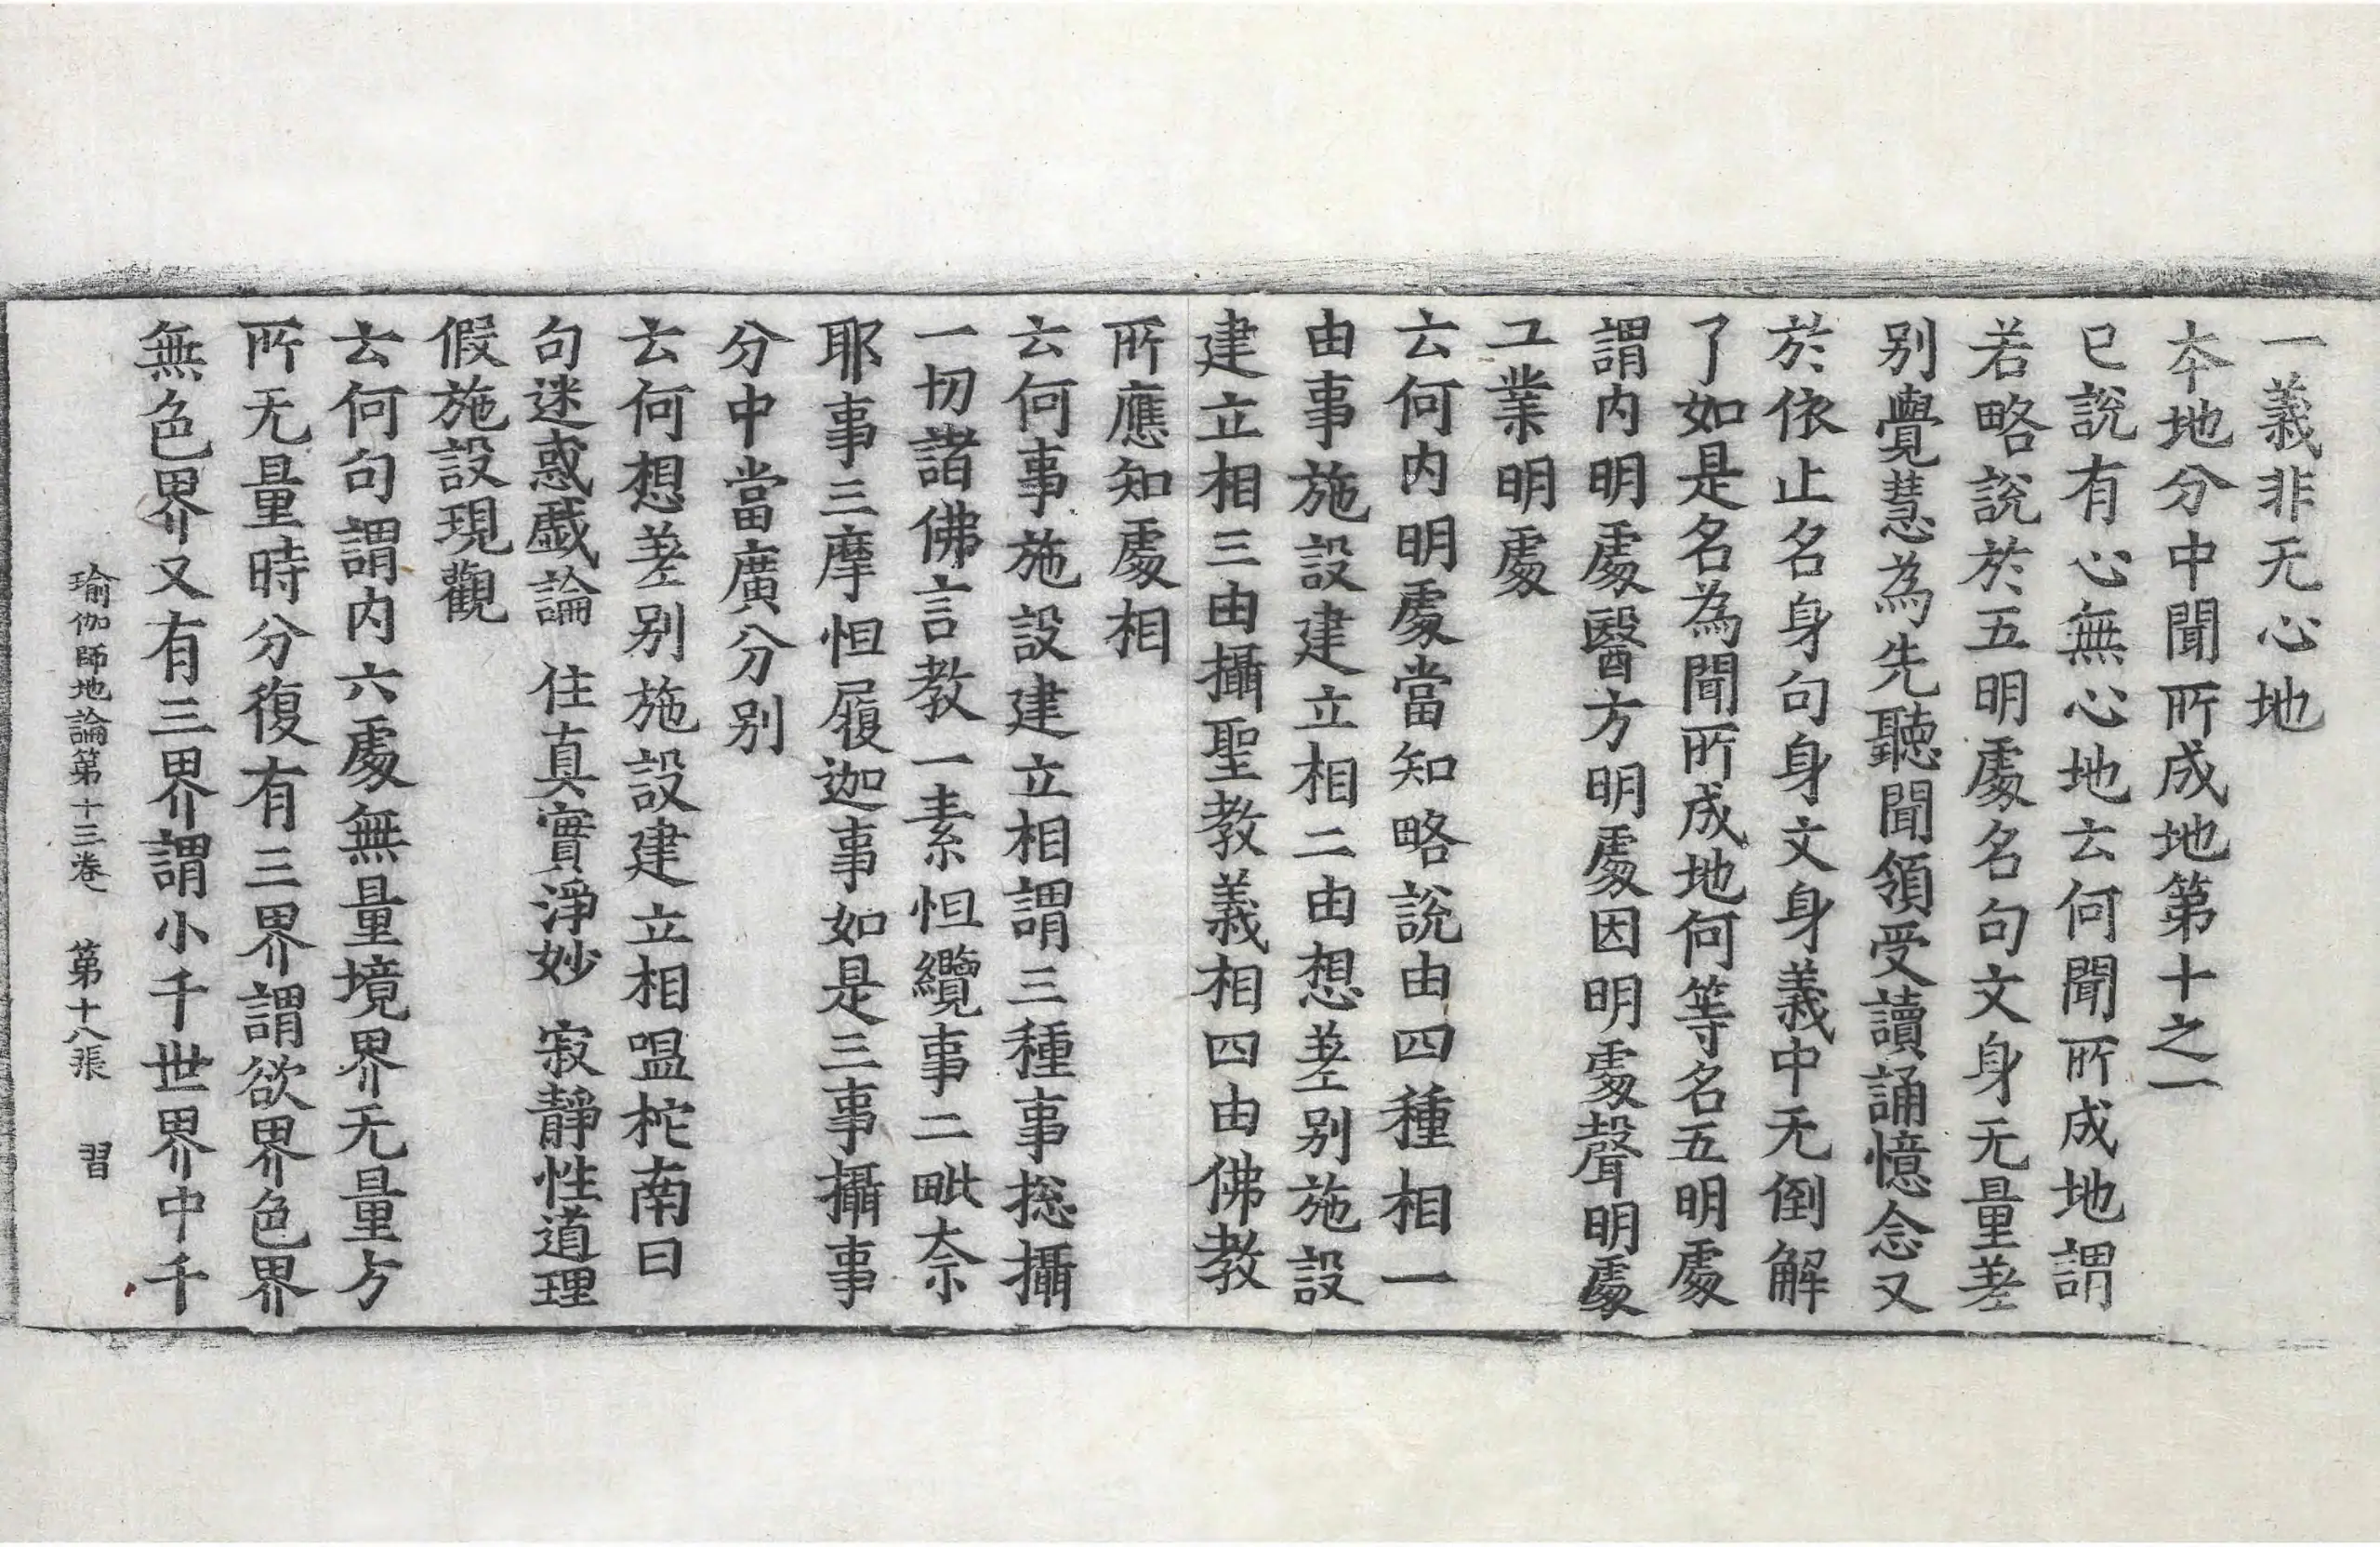 一義非无心地
本地分中聞所成地第十之一
已說有心無心地云何聞所成地謂
若略說於五明處名句文身无量差
别覺慧為先聽聞領受讀誦憶念又
於依止名身句身文身義中无倒解
了如是名為聞所成地何等名五明處
謂内明處醫方明處因明處聲明處
工業明處
云何内明處當知略說由四種相一
由事施設建立相二由想差别施設
建立相三由攝聖教義相四由佛教
所應知處相
云何事施設建立相謂三種事揔攝
一切諸佛言教一素怛纜事二毗奈
耶事三摩怛履迦事如是三事攝事
分中當廣分别
云何想差别施設建立相嗢柁南曰
句迷惑戲論　住真實淨妙　寂靜性道理
假施設現觀
云何句謂内六處無量境界无量方
所无量時分復有三界謂欲界色界
無色界又有三界謂小千世界中千
瑜伽師地論第十三卷　第十八張　習